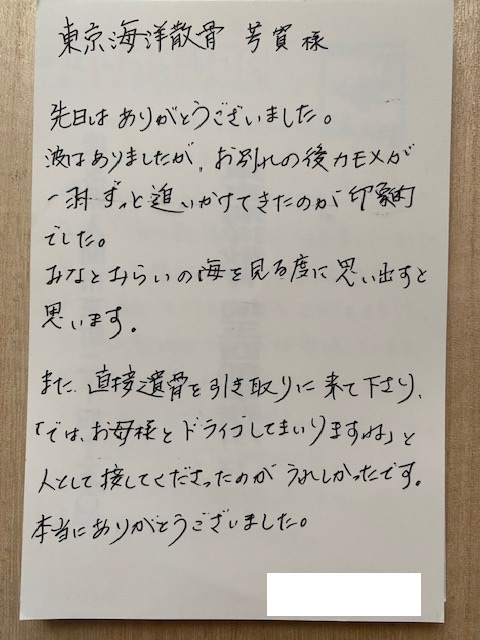 東京海洋散骨 芳賀様
先日は ありがとうございました。
波はありましたが、お別れの後カモメが
一羽ずっと追いかけてきたのが印象的
でした。
みなとみらいの海を見る度に思い出すと
思います。
また、直接遺骨を引き取りに来て下さり、
「では、お母様とドライブしてまいりますね」と
人として接してくださったのが うれしかったです。
本当にありがとうございました。